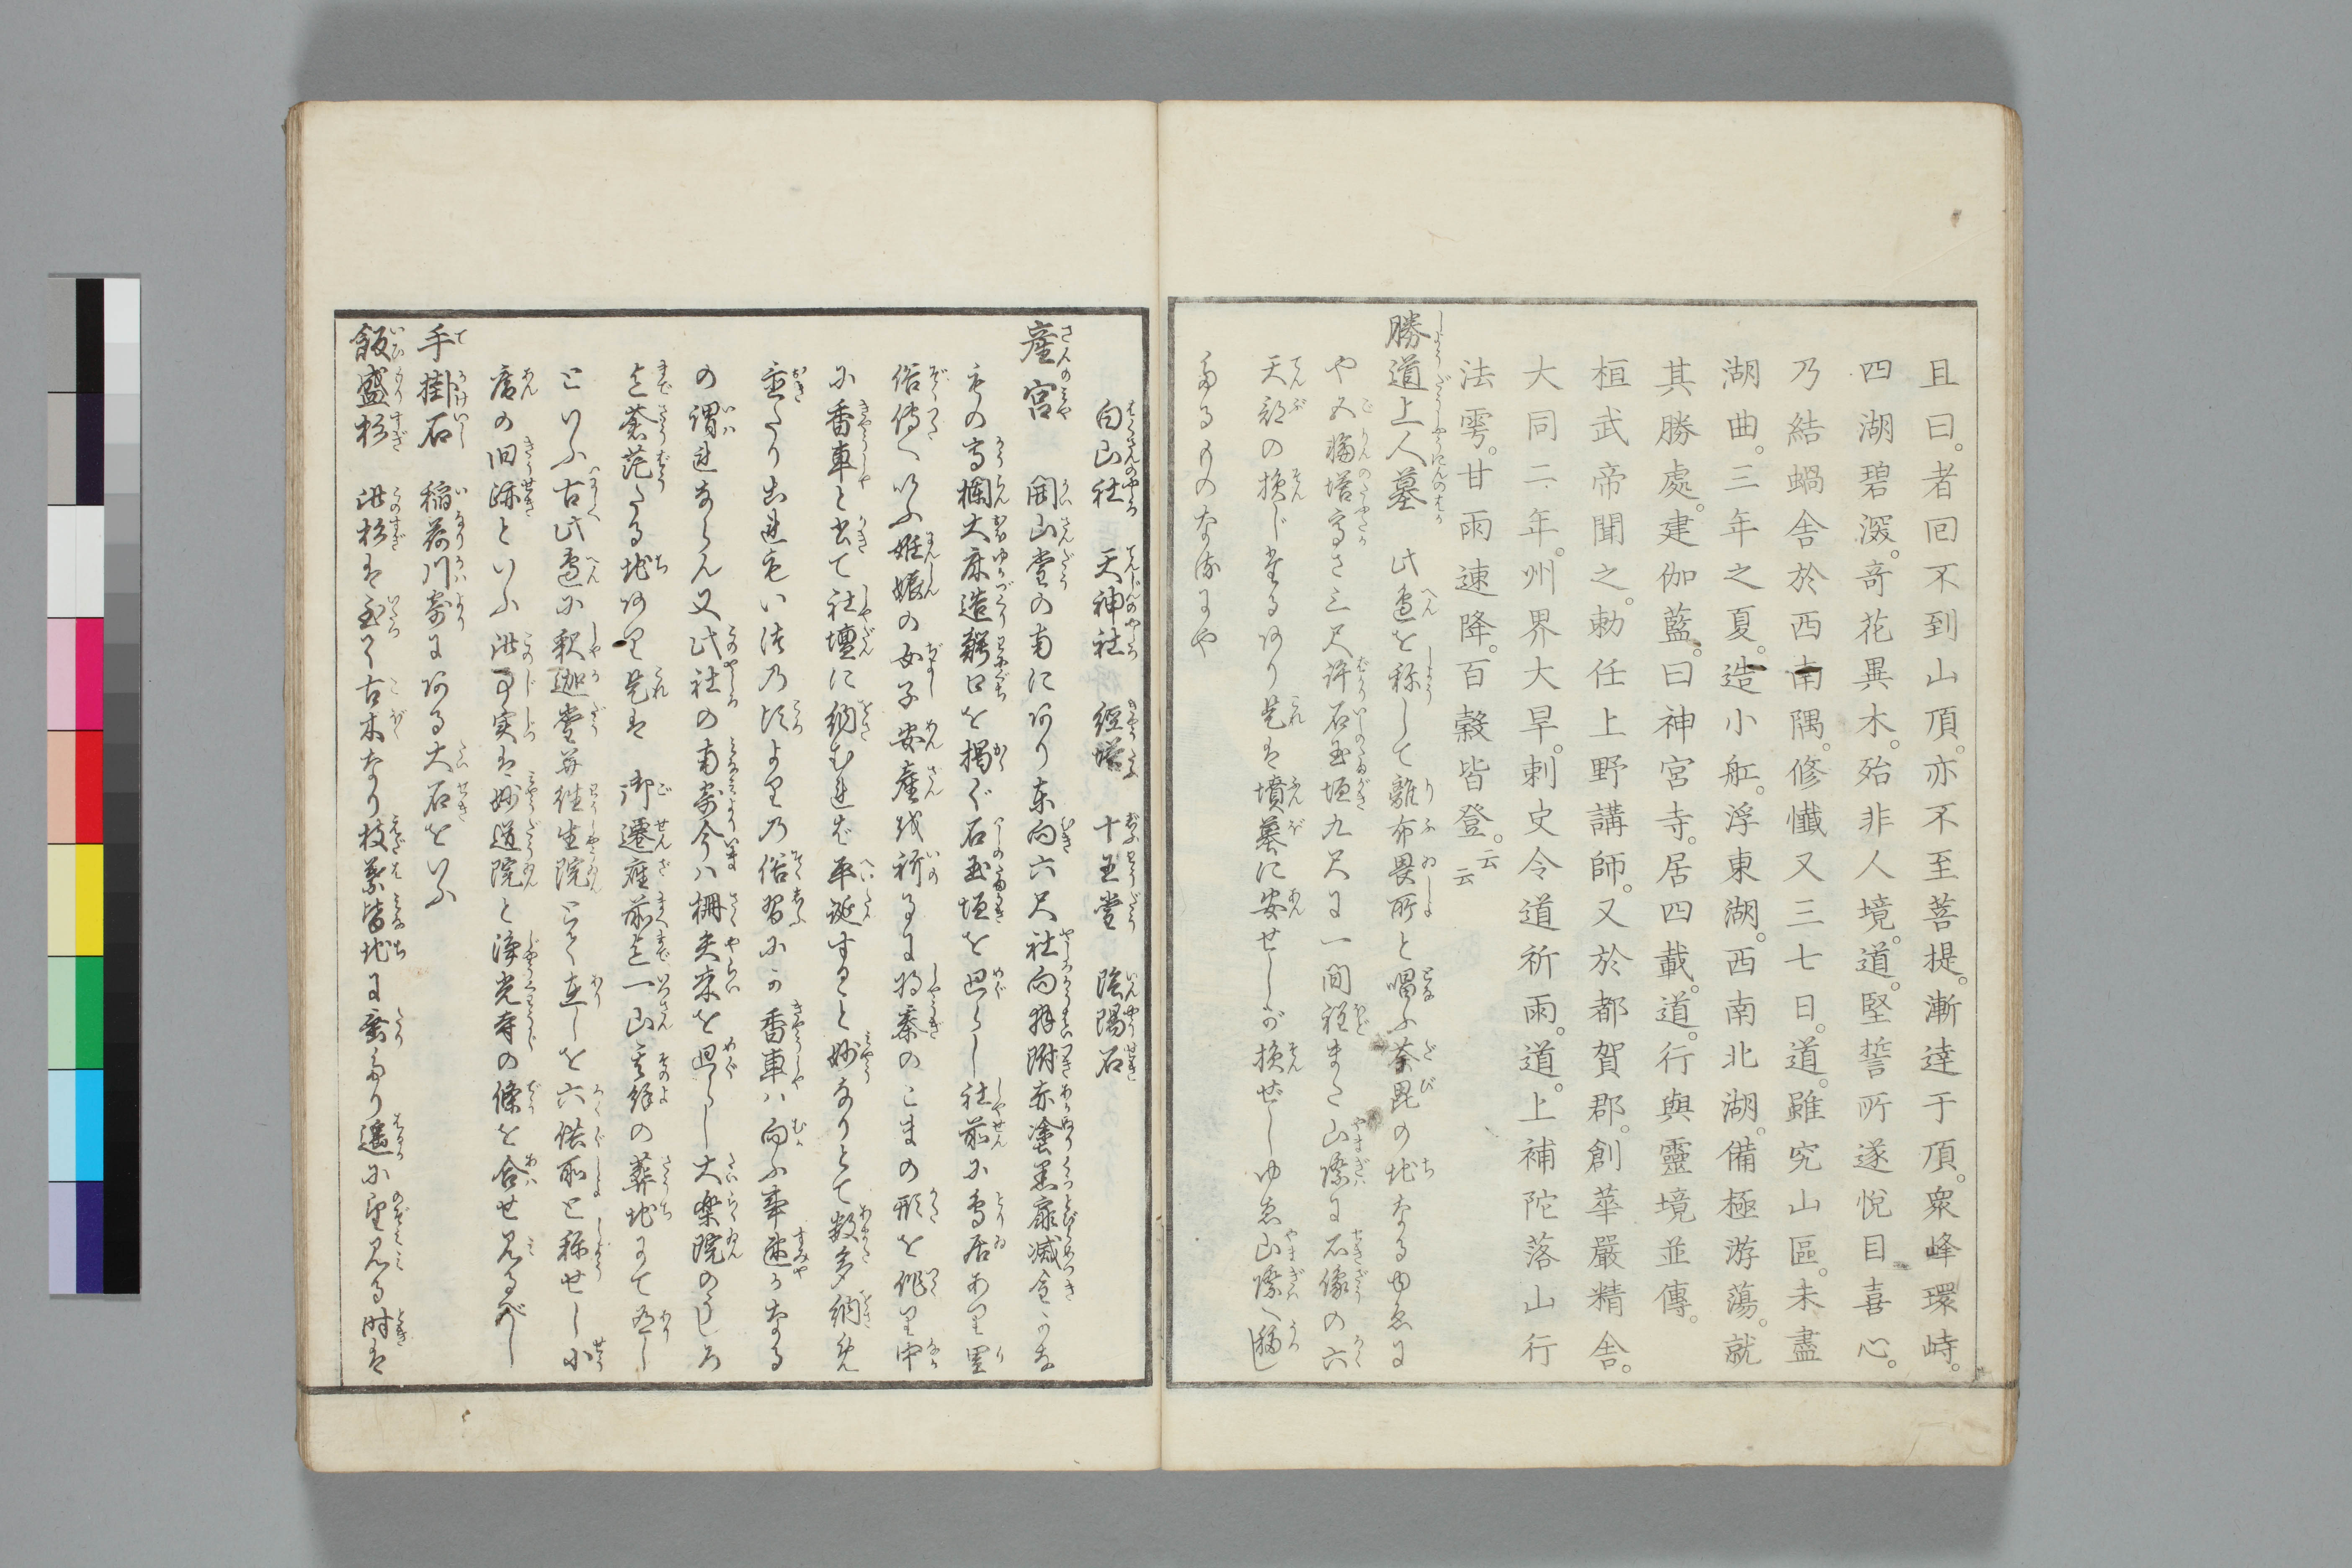 且曰。者回不到山頂。亦不至菩提。漸達于頂。衆峰環峙。
四湖碧深。奇花異木。殆非人境。道。堅誓所遂悅目喜心。
乃結蝸舎於西南隅。修懺又三七日。道。雖究山區。未盡
湖曲。三年之夏。造小舡。浮東湖。西南北湖。備極游蕩。就
其勝處。建伽藍。曰神宮寺。居四載。道。行與靈境並傳。
桓武帝聞之。勅任上野講師。又於都賀郡。創華嚴精舎。
大同二年。州界大旱。刺史令道祈雨。道。上補陀落山行
法雩。甘雨速降。百穀皆登。云云
勝道上人墓 此邉を称して離布畏所と唱ふ荼毘の地なるゆゑに
や五輪塔高さ三尺許石玉垣九尺に一間程また山際に石像の六
天部の損じたるあり是は墳墓に安せしが損ぜしゆゑ山際へ移し
たるものなるにや
白山社 天神社 經塔 十王堂 陰陽石
産宮 開山堂の南にあり東向六尺社向拝附赤塗黒扉滅金かな
ものの高欄大床造鰐口を掲ぐ石玉垣を廻らし社前に鳥居あり里
俗傳へいふ姙娠の女子安産を祈るに将棊のこまの形を作り中
に香車と書て社壇に納むれば平誕すること妙なりとて数多納免
置たりこれもいにしへ乃比よりの俗習にか香車は向ふ事速かなる
の謂れならん又此社の南寄今ハ柵矢来を廻らし大楽院のうしろ
迄蒼茫たる地あり是は 御遷座前迄一山其餘の葬地にて有し
といふ古此邉に釈迦堂并往生院とて在しを六供所と称せし小
庵の旧跡といふ此事実は妙道院と淨光寺の條を合せ見るべし
手掛石 稲荷川寄にある大石をいふ
飯盛杉 此杉は至て古木なり枝葉皆地に垂たり遥に望見る時は